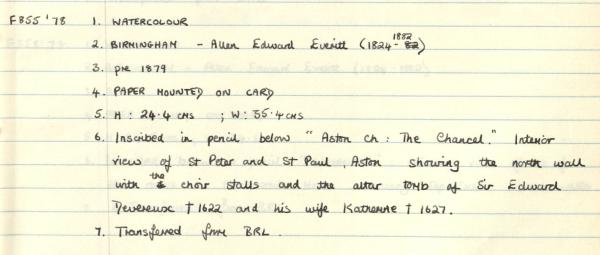 F855 '78 1. WATERCOLOUR
2. BIRMINGHAM - Allen Edward Everitt (1824 - 1882)
3. pre 1879
4. PAPER MOUNTED ON CARD
5. H : 24.4 CMS ; W : 35.4 CMS
6. Inscribed in pencil below "Aston Ch : The Chancel." Interior
view of St Peter and St Paul, Aston showing the north wall
with the choir stalls and the altar tomb of Sir Edward
Devereux † 1622 and his wife Katherine † 1627.
7. Transferred from BRL.